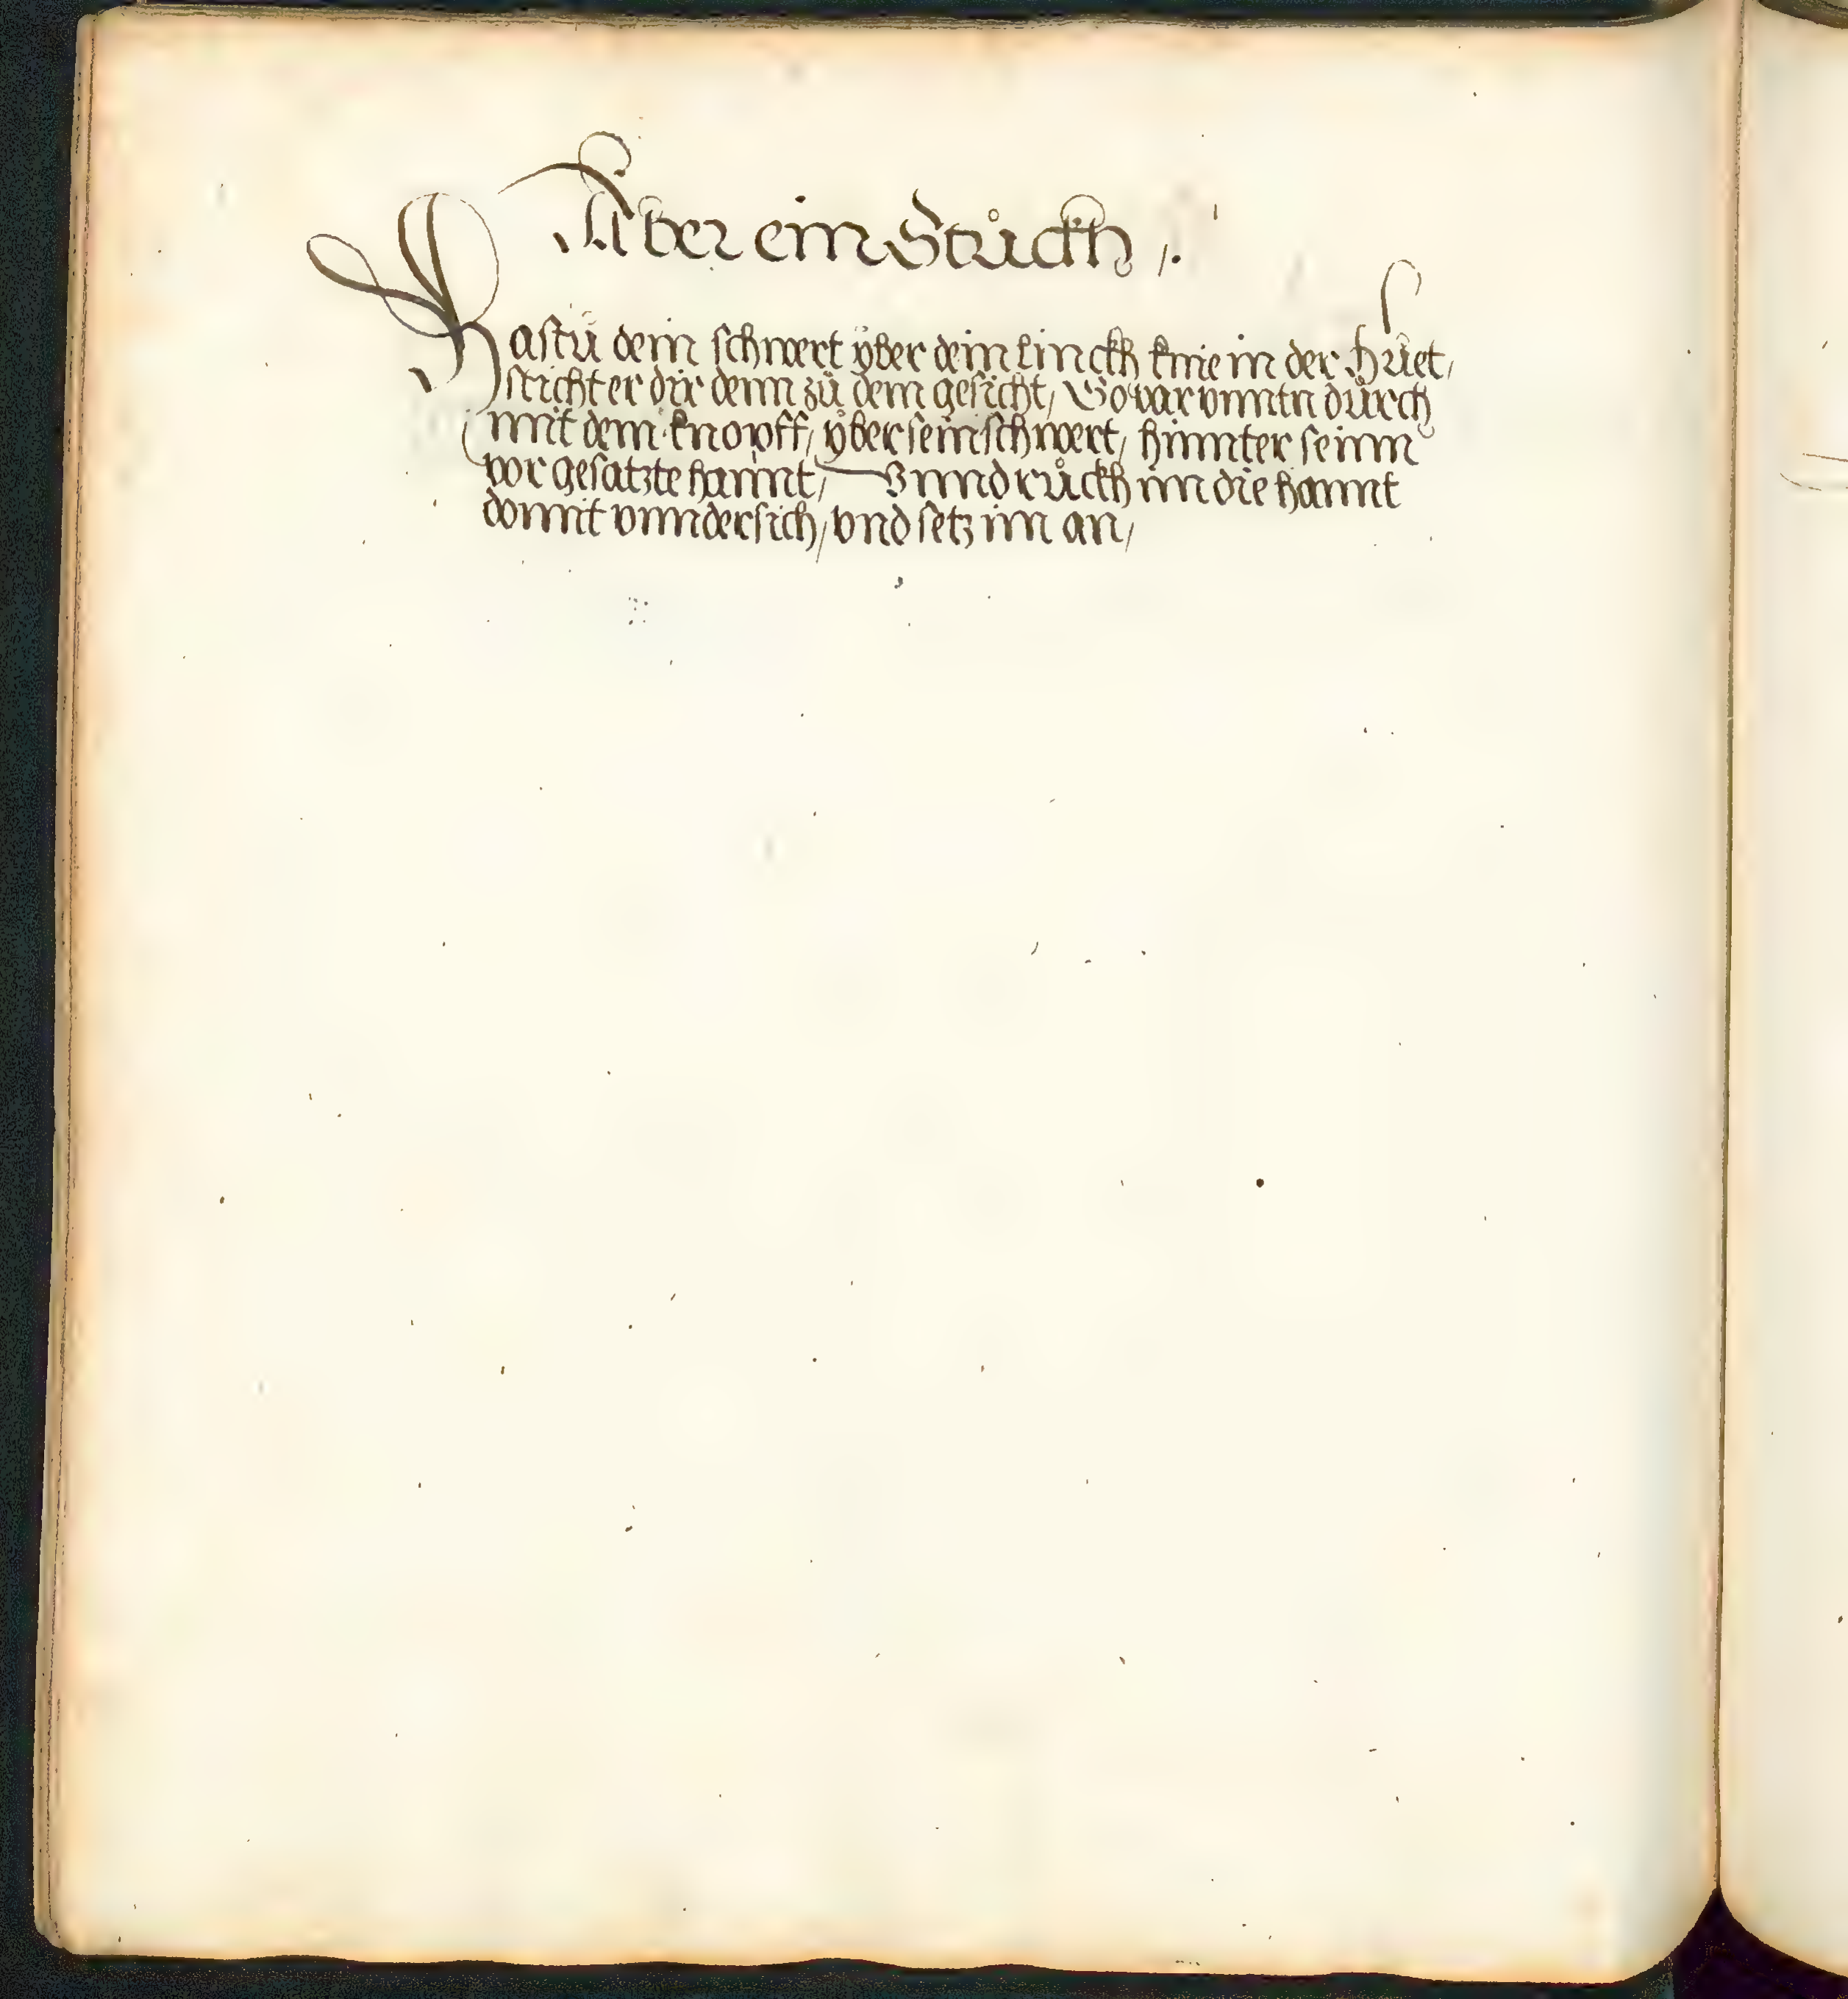 Aber ein Stuckh /.
Hastu dein schwert yber dein linckh knie in der Huet,
sticht er dir denn zu dem gesicht, So var unntn durch
mit dem knopff, yber sein schwert, hinnter seinn
vor gesatzte hannt, Vnnd ruckh im die hannt
domit vnndersich, vnd setz im an,